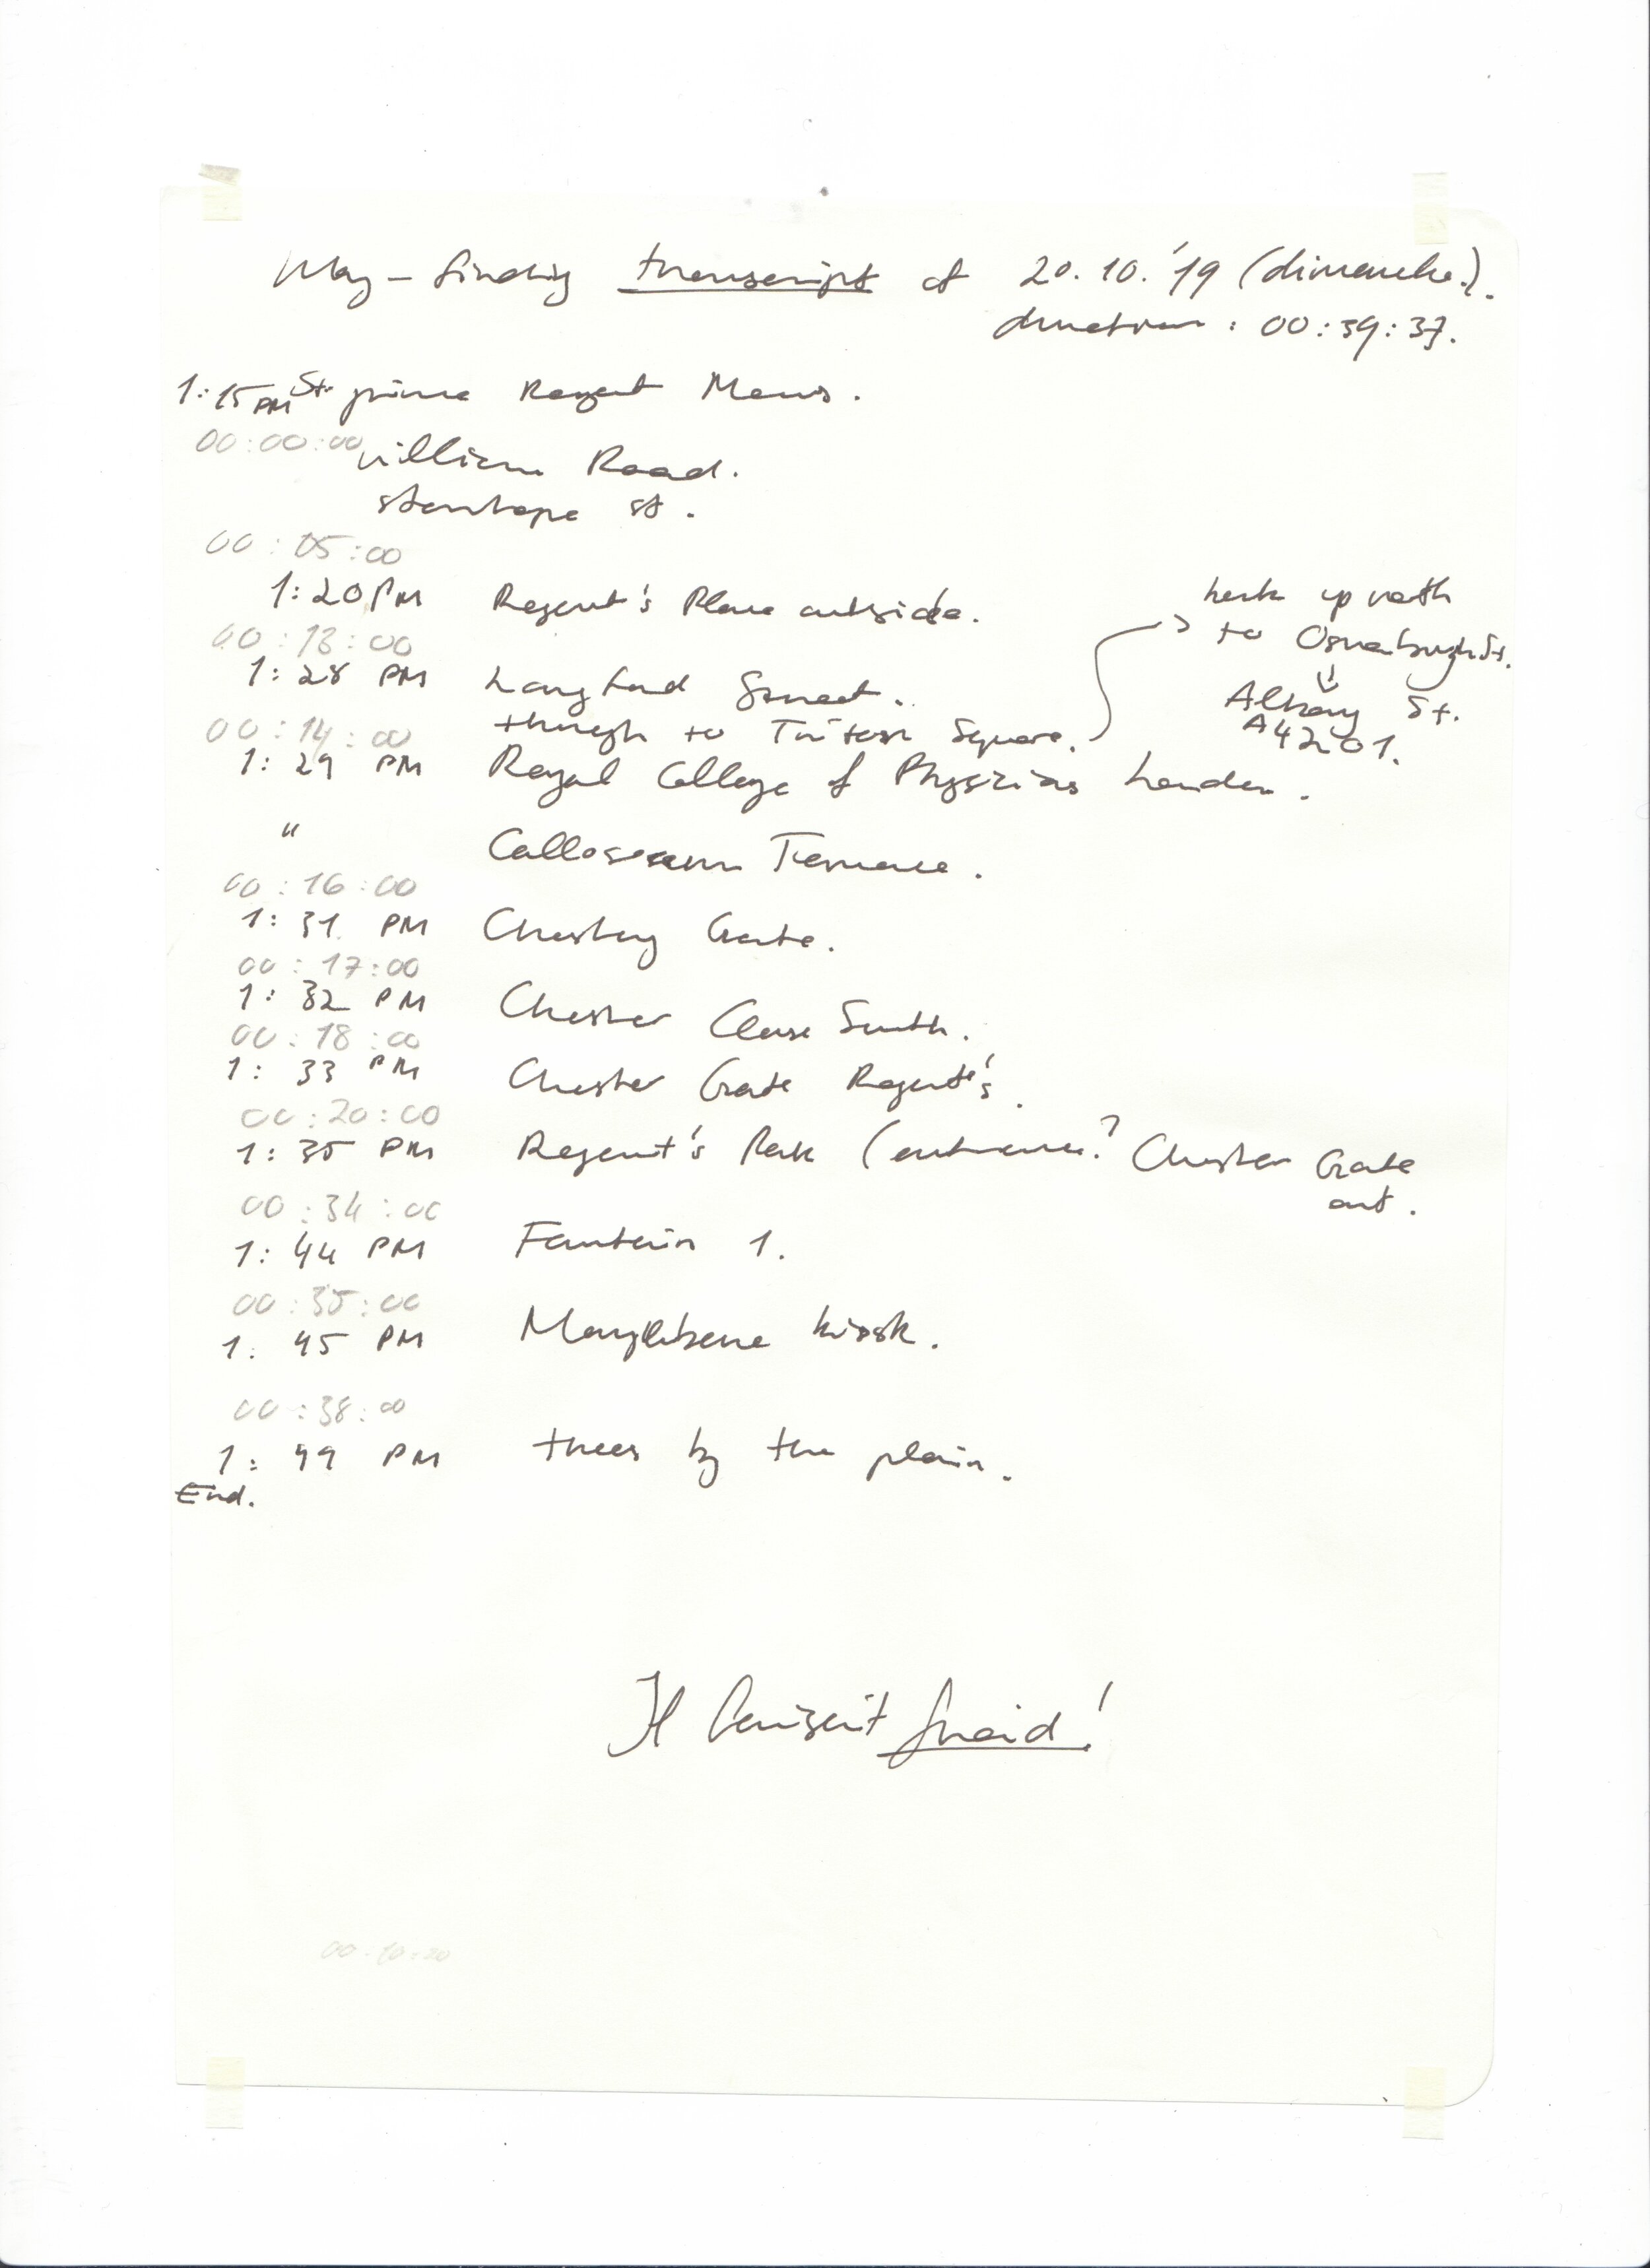 Way-finding transcript of 20.10.'19 (dimanche).
duration : 00:39:37.
1:15 PM St. prince Regent Mews.
00:00:00
william Road.
stanhope st.
00:05:00
1:20 PM Regent's Place outside.
00:13:00
1:28 PM Longford Street.
through to Triton Square.
back up north
to Osnaburgh St.
Albany St.
A4201.
00:14:00
1:29 PM Royal College of Physicians London.
" Collosseum Terrace.
00:16:00
1:31 PM Chester Gate.
00:17:00
1:32 PM Chester Close South.
00:18:00
1:33 PM Chester Gate Regent's.
00:20:00
1:35 PM Regent's Park (entrance? Chester Gate
out.
00:34:00
1:44 PM Fontain 1.
00:35:00
1:45 PM Marylebone kiosk.
00:38:00
1:49 PM trees by the plain.
End.
Il faisait froid!
00:10:20